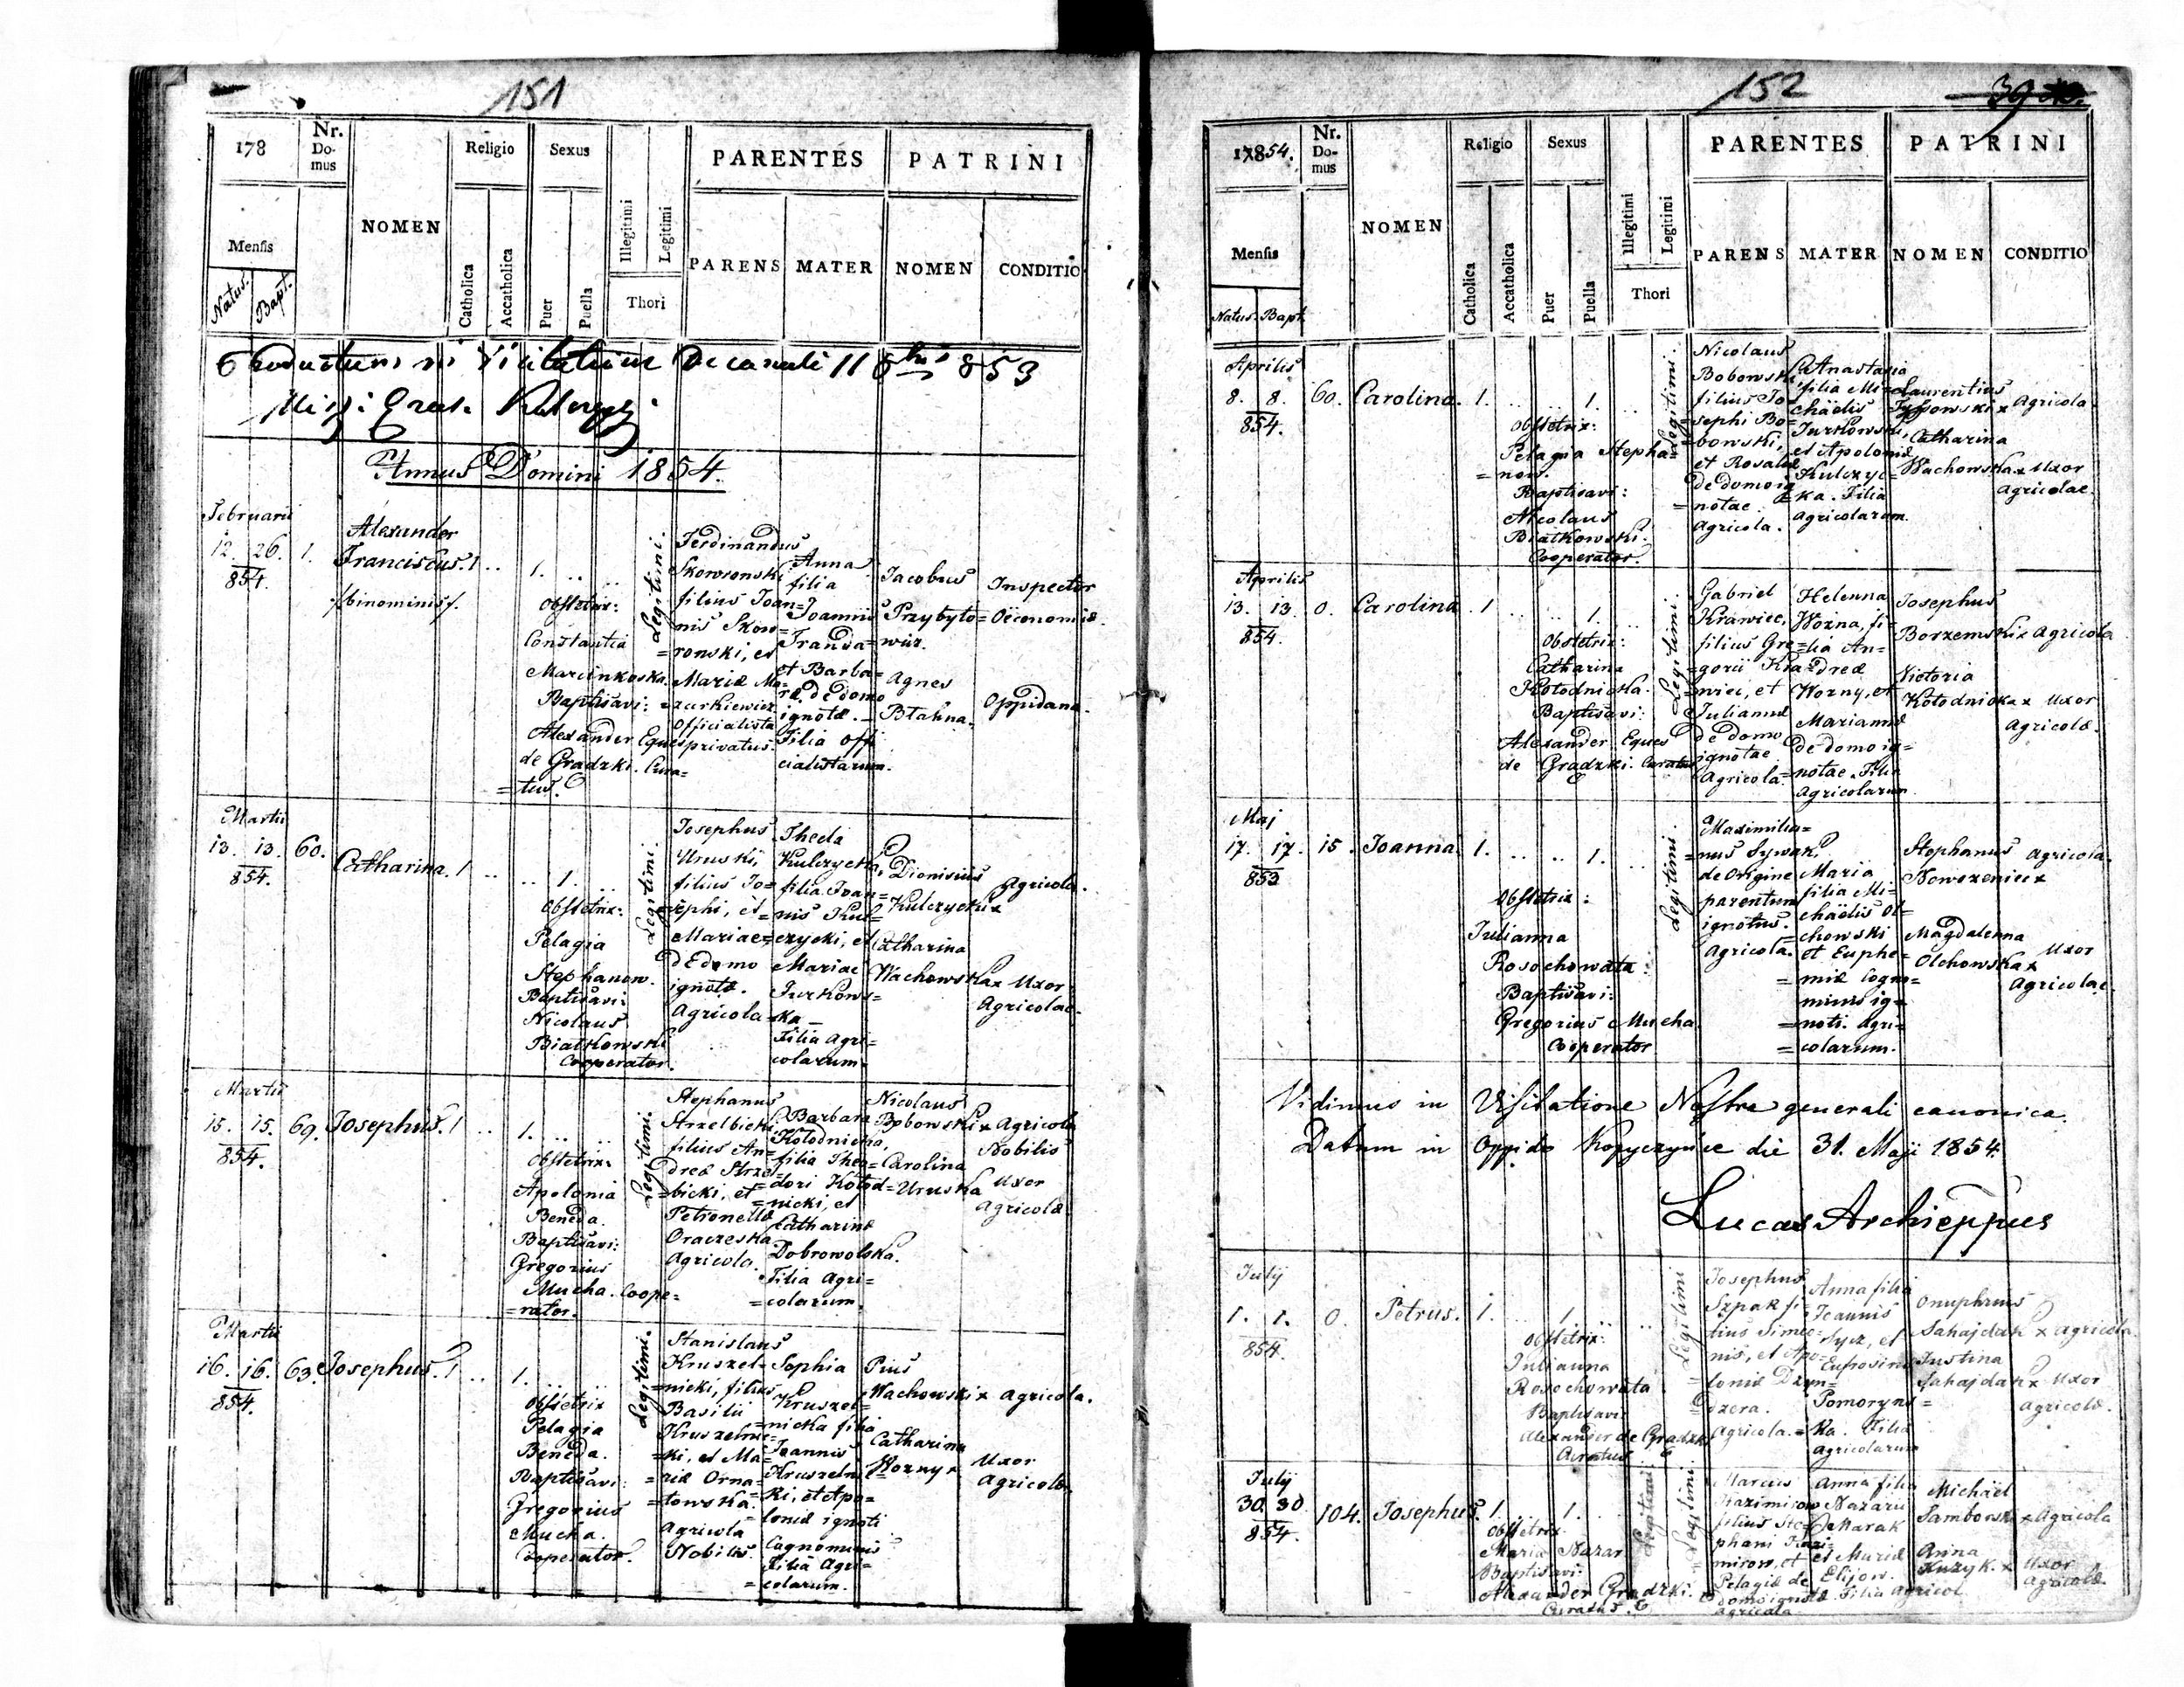 151
178
Nr. Do- mus
NOMEN
Religio
Sexus
PARENTES
PATRINI
Mensis
Natus. Bapt.
Catholica
Accatholica
Puer
Puella
Illegitimi
Legitimi
Thori
PARENS
MATER
NOMEN
CONDITIO
Decanali 11 8bris 853
Annus Domini 1854.
Februarii
12. 26. 1.
854.
Alexander
Franciscus. 1 .. 1. .. ..
/:binominis/.
Obstetrix:
Constantia
Marcinkoska.
Baptisavi:
Alexander Eques
de Gradzki. Cura=
=tus.
Legitimi.
Ferdinandus
Skowronski
filius Joan=
nis Skow=
=ronski, et
Mariæ Ma=
=zurkiewicz
Officialista
privatus.
Anna
filia
Joannis
Franda=
et Barba=
ræ de domo
ignotæ. –
Filia offi
cialistarum.
Jacobus
Przybyto=
=wicz.
Agnes
Błahna.
Inspector
Oeconomiæ.
Oppidana.
Martii
13. 13. 60.
854.
Catharina. 1 .. .. 1. ..
Obstetrix:
Pelagia
Stephanow.
Baptisavi:
Nicolaus
Białkowski
Cooperator.
Legitimi.
Josephus
Uruski,
filius Jo=
=sephi, et
Mariae
de domo
ignotæ.
Agricola
Thecla
Kulczycka,
filia Joan=
=nis Kul=
=czycki, et
Mariae
Jurkows=
=ka –
Filia Agri=
colarum.
Dionisius
Kulczycki x
Catharina
Wachowska x
Agricola.
Uxor
Agricolae.
Martii
15. 15. 69. Josephus. 1 .. 1. .. ..
854.
Obstetrix:
Apolonia
Beneda.
Baptisavi:
Gregorius
Mucha. Coope=
=rator.
Legitimi.
Stephanus
Strzelbicki,
filius An=
dreæ Strzel=
=bicki, et
Petronellæ
Oraczeska
Agricola.
Barbara
Kołodnicka,
filia Theo=
=dori Kołod=
=nicki, et
Catharinæ
Dobrowolska.
Filia Agri=
=colarum.
Nicolaus
Bobowski x
Carolina
Uruska
Agricola
Nobilis
Uxor
Agricolæ
Martii
16. 16. 63. Josephus. 1 .. 1. .. ..
854.
Obstetrix
Pelagia
Beneda.
Baptisavi:
Gregorius
Mucha.
Cooperator.
Legitimi.
Stanislaus
Kruszel=
=nicki, filius
Basilii
Kruszelnic=
=ki, et Ma=
=riæ Orna=
=towska.
Agricola
Nobilis.
Sophia
Kruszel=
=nicka filia
Joannis
Kruszelnic=
ki, et Apo=
=loniæ ignoti
Cognominis
Filia Agri=
=colarum.
Pius
Wachowski x
Catharina
Wozny x
Agricola.
Uxor
Agricolæ.
152
39
17854.
Nr. Do- mus
NOMEN
Religio
Sexus
PARENTES
PATRINI
Mensis
Natus. Bapt.
Catholica
Accatholica
Puer
Puella
Illegitimi
Legitimi
Thori
PARENS
MATER
NOMEN
CONDITIO
Aprilis
8. 8. 60. Carolina. 1. .. .. 1. ..
854.
Obstetrix:
Pelagia Stepha=
=now.
Baptisavi:
Nicolaus
Białkowski.
Cooperator.
Legitimi.
Nicolaus
Bobowski,
filius Jo=
=sephi Bo=
=bowski,
et Rosaliæ
de domo ig
=notae.
Agricola.
Anastasia
filia Mi=
chäelis
Jurkowski,
et Apoloniæ
Kulczyc=
=ka. Filia
Agricolarum.
Laurentius
Tyssowski x
Catharina
Wachowska x
Agricola
Uxor
Agricolae.
Aprilis
13. 13. 0. Carolina. 1 .. .. 1. ..
854.
Obstetrix:
Catharina
Kołodnicka.
Baptisavi:
Alexander Eques
de Gradzki. Curatus
Legitimi.
Gabriel
Krawiec,
filius Gre=
=gorii Kra=
=wiec, et
Juliannæ
de domo
ignotae
Agricola.
Helenna
Wozna, fi=
=lia An=
=dreæ
Wozny, et
Mariannæ
de domo ig=
=notae. Filia
Agricolarum
Josephus
Borzemski x
Victoria
Kołodnicka x
Agricola
Uxor
Agricolæ.
Maj
17. 17. 15. Joanna. 1. .. .. 1. ..
853
Obstetrix:
Julianna
Rosochowata:
Baptisavi:
Gregorius Mucha
Cooperator
Legitimi.
Maximilia=
=nus Sywak,
de Origine
parentum
ignotus.
Agricola.
Maria
filia Mi=
chäelis Ol=
=chowski
et Euphe=
=miæ Cogno=
minis ig=
=noti. Agri=
=colarum.
Stephanus
Nowszeniec x
Magdalenna
Olchowska x
Agricola.
Uxor
Agricolae.
Vidimus in Visitatione Nostra generali canonica.
Datum in Oppido Kopyczyńce die 31. Maji 1854.
Lucas Archieppus
July
1. 1. 0. Petrus. 1. .. 1. .. ..
854.
Obstetrix:
Julianna
Rosochowata
Baptisavi:
Alexander de Gradzki
Curatus
Legitimi
Josephus
Szpak fi=
lius Simeo=
nis, et Apo=
loniæ Dzyn=
=dzera.
Agricola.
Anna filia
Joannis
Sycz, et
Eufrosinæ
Pomoryns=
=ka. Filia
Agricolarum
Onuphrius
Sahajdak x
Justina
Sahajdak x
Agricola.
Uxor
Agricolæ.
July
30. 30. 104. Josephus. 1. .. 1.
854.
Obstetrix
Maria Nazar
Baptisavi:
Alexander Gradzki.
Curatus.
Legitimi.
Marcus
Kazimirow
filius Ste=
phani Kazi=
mirow, et
Pelagiæ de
domo ignotæ
Agricola
Anna filia
Nazarii
Marak
et Mariæ
Elijow.
Filia Agricol
Michäel
Samborski x
Anna
Kuzyk. x
Agricola
Uxor
Agricolæ.